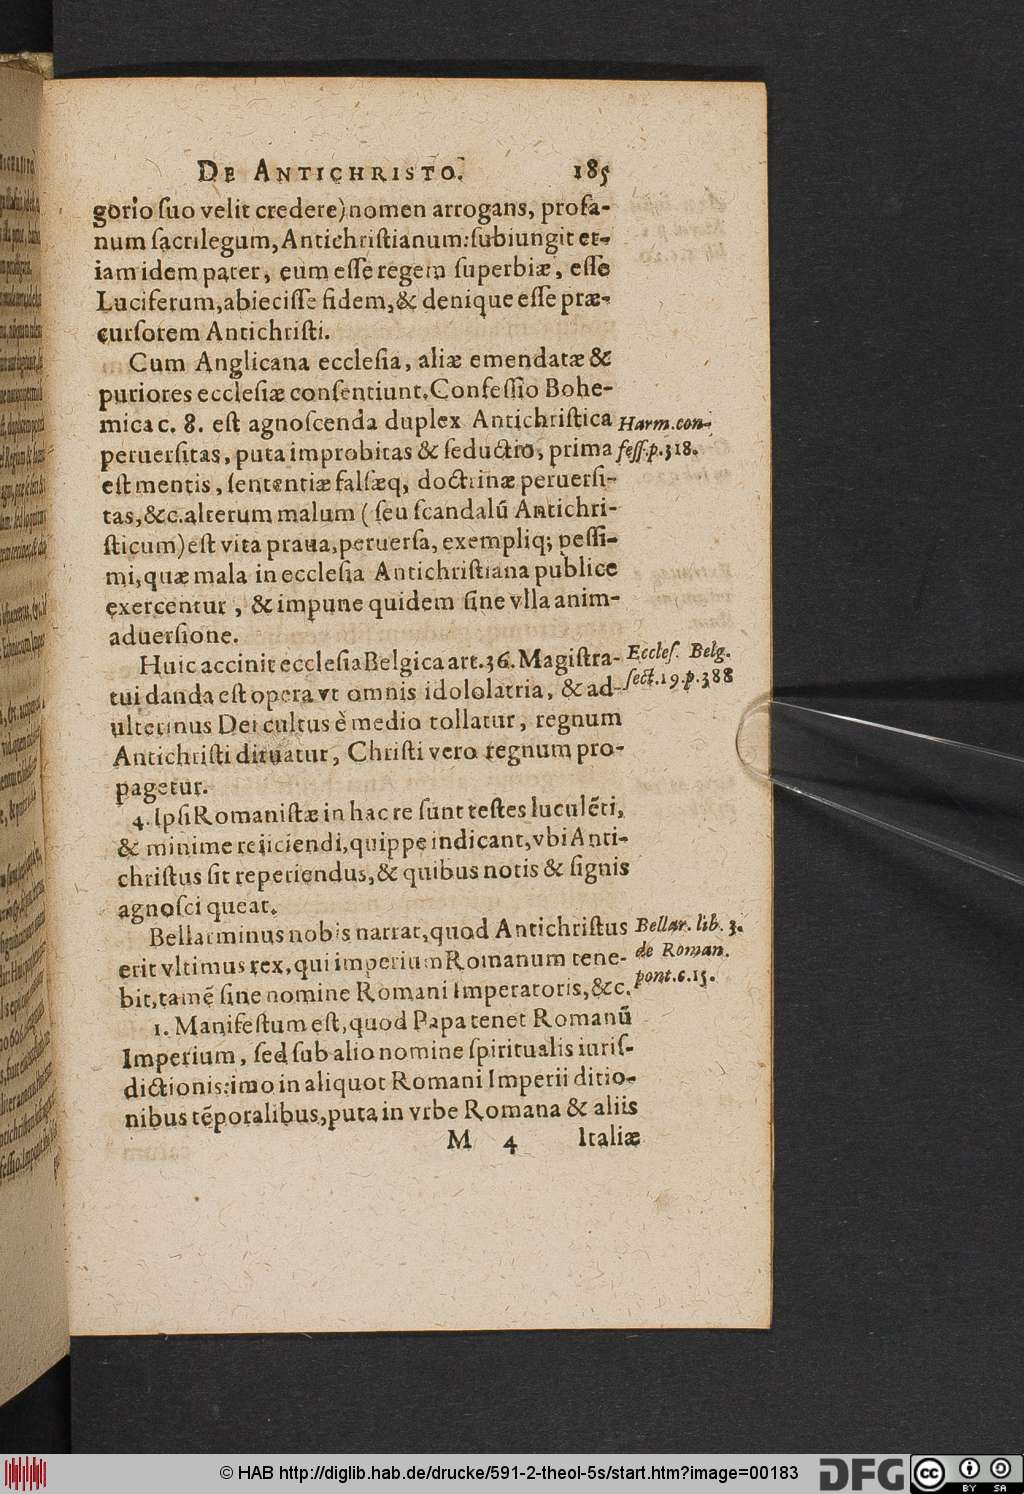 DE ANTICHRISTO. 185
gorio ſuo velit credere) nomen arrogans, profa-
num ſacrilegum, Antichriſtianum: ſubiungit et-
iam idem pater, eum eſſe regem ſuperbiæ, eſſe
Luciferum, abieciſſe fidem, & denique eſſe præ-
curſorem Antichriſti.
Cum Anglicana eccleſia, aliæ emendatæ &
puriores eccleſiæ conſentiunt. Confeſſio Bohe-
mica c. 8. eſt agnoſcenda duplex Antichriſtica
Harm. con-
peruerſitas, puta improbitas & ſeductio, prima
feſſ. p. 318.
eſt mentis, ſententiæ falſæq, doctrinæ peruerſi-
tas, &c. alterum malum (ſeu ſcandalũ Antichri-
ſticum) eſt vita praua, peruerſa, exempliq; peſſi-
mi, quæ mala in eccleſia Antichriſtiana publice
exercentur, & impune quidem ſine vlla anim-
aduerſione.
Huic accinit eccleſia Belgica art. 36. Magiſtra-
Eccleſ. Belg.
tui danda eſt opera vt omnis idololatria, & ad-
ſect. 19. p. 388
ulterinus Dei cultus è medio tollatur, regnum
Antichriſti diruatur, Chriſti vero regnum pro-
pagetur.
4. Ipſi Romaniſtæ in hac re ſunt teſtes luculẽti,
& minime reiiciendi, quippe indicant, vbi Anti-
chriſtus ſit reperiendus, & quibus notis & ſignis
agnoſci queat.
Bellarminus nobis narrat, quod Antichriſtus
Bellar. lib. 3.
erit vltimus rex, qui imperium Romanum tene-
de Roman.
bit, tamẽ ſine nomine Romani Imperatoris, &c.
pont. c. 15.
1. Manifeſtum eſt, quod Papa tenet Romanũ
Imperium, ſed ſub alio nomine ſpiritualis iuriſ-
dictionis: imo in aliquot Romani Imperii ditio-
nibus tẽporalibus, puta in vrbe Romana & aliis
M 4 Italiæ
© HAB http://diglib.hab.de/drucke/591-2-theol-5s/start.htm?image=00183
DFG
cc BY SA